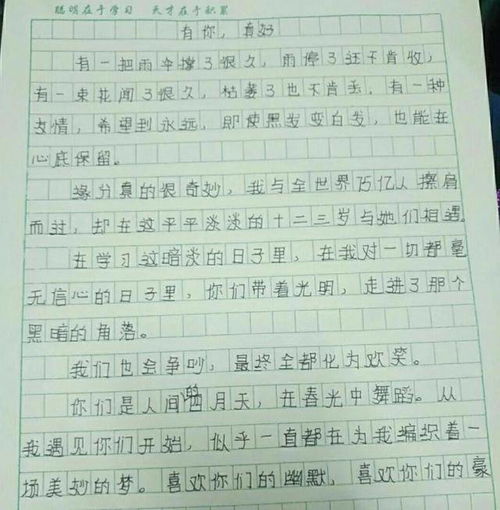 聪明在于学习 天才在于积累
有你，真好
有一把雨伞撑了很久，雨停了还不肯收，
有一束花闻了很久，枯萎了也不肯丢，有一种
友情，希望到永远，即使黑发变白发，也能在
心底保留。
缘分真的很奇妙，我与全世界75亿人擦肩
而过，却在这平平淡淡的十二三岁与她们相遇。
在学习这暗淡的日子里，在我对一切都毫
无信心的日子里，你们带着光明，走进了那个
黑暗的角落。
我们也会争吵，最终全都化为欢笑。
你们是人间的四月天，在春光中舞蹈。从
我遇见你们开始，似乎一直都在为我编织着一
场美妙的梦。喜欢你们的幽默，喜欢你们的豪